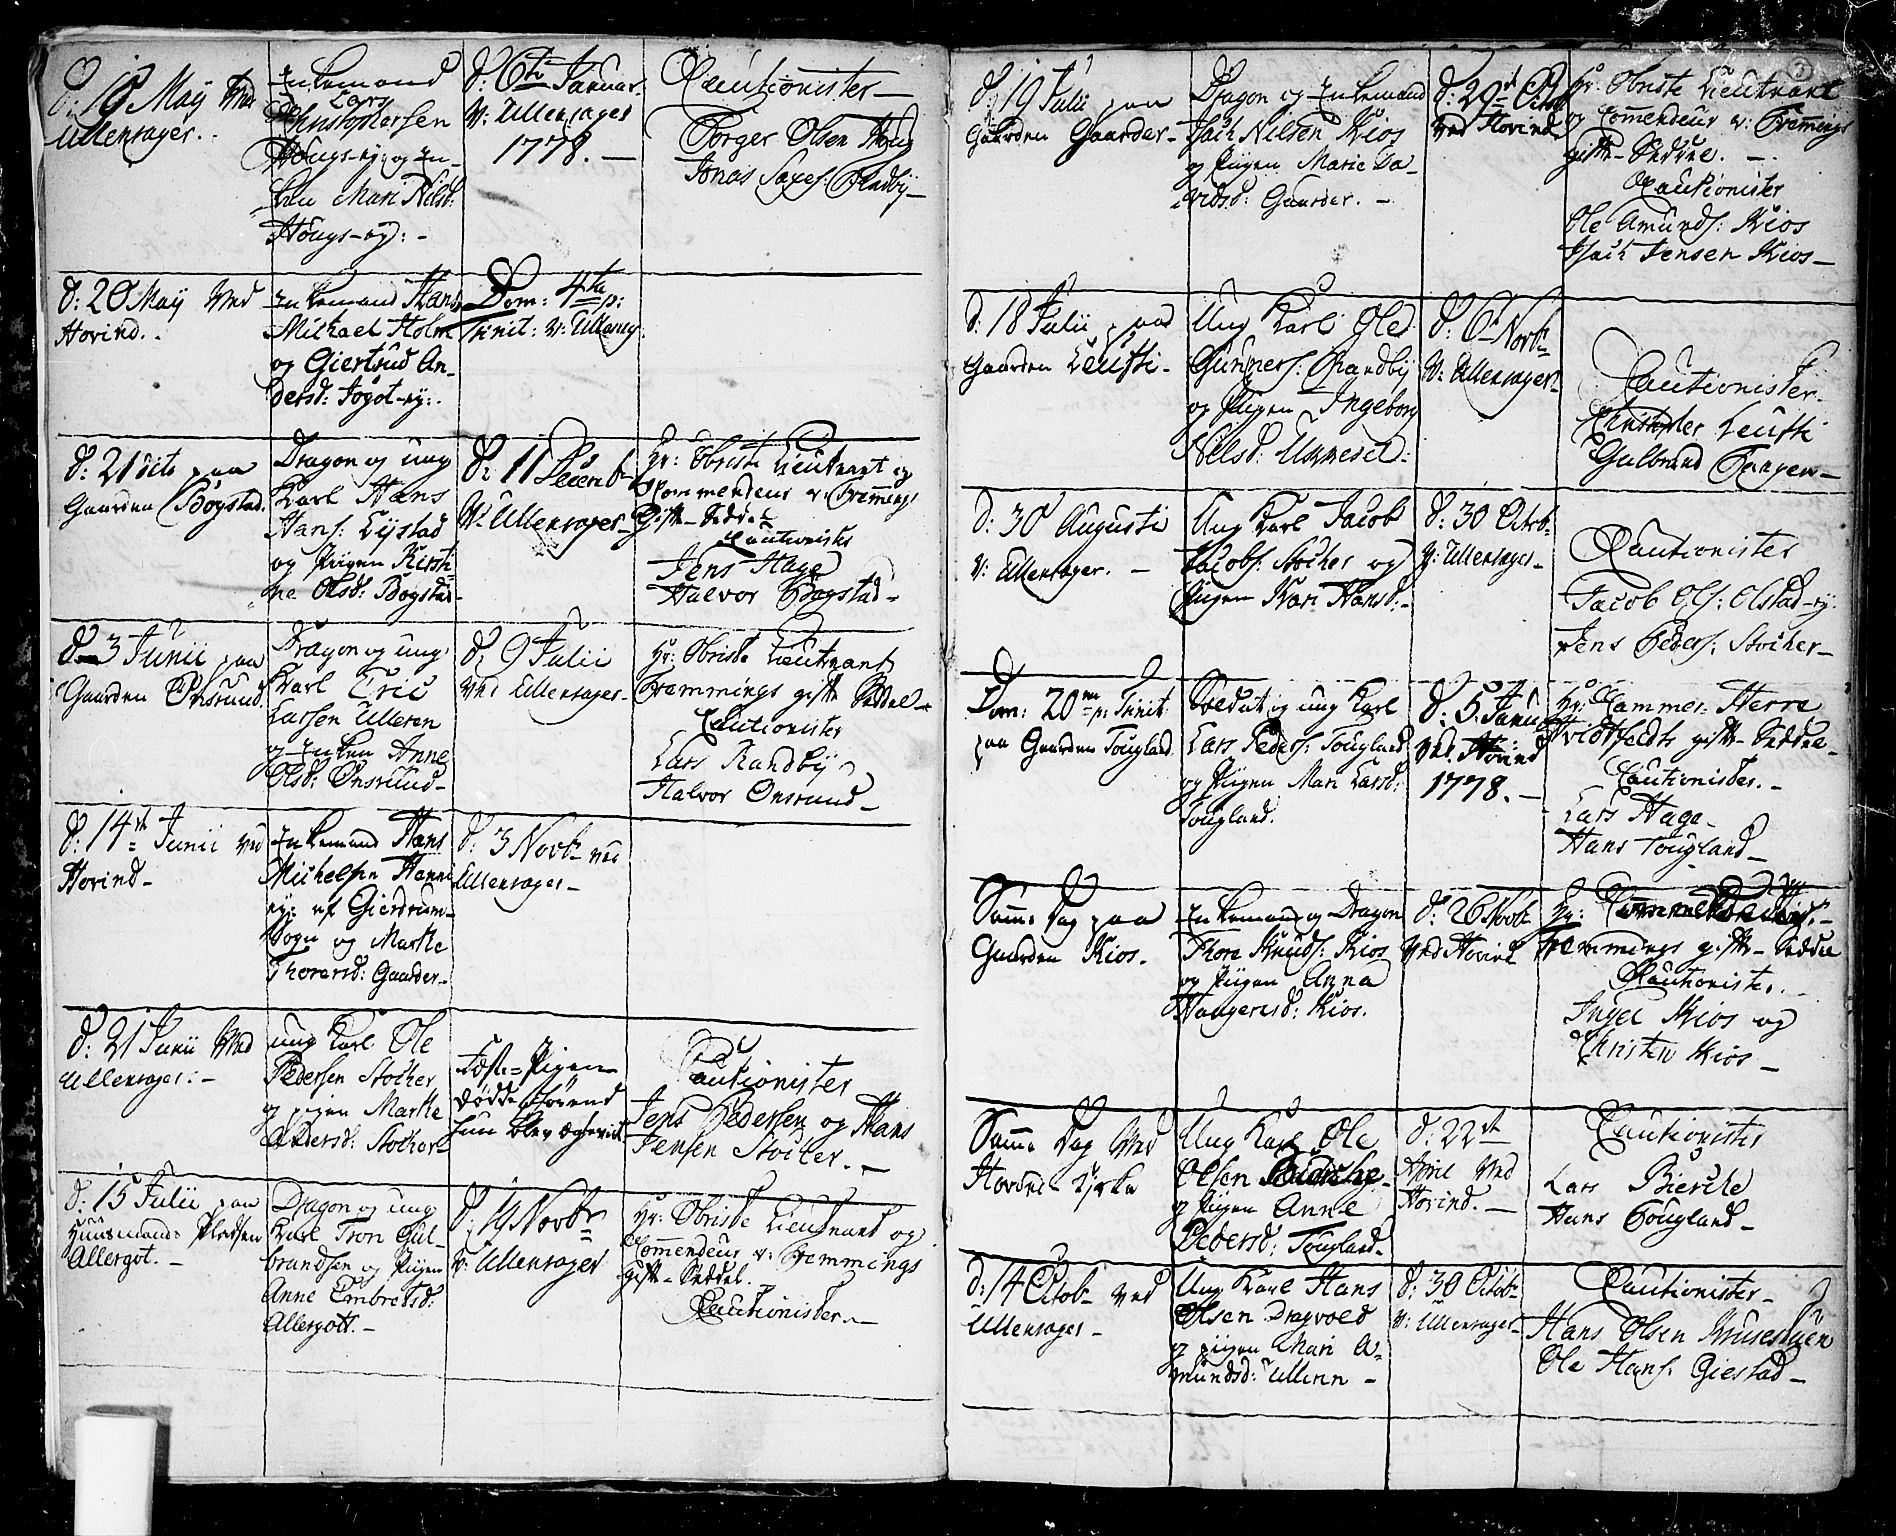 d: 18 May Ved
Ullensager.
Enkemand
Lars
Christophersen
Hougs-ey: og En-
ken Mari Nilsd:
Hougs-ey:
d: 6te Januar.
V: Ullensager
1778.
Cautionister
Torger Olsen Houg
Jonas Saxes: Randby
d: 20 May Ved
Hovind.
Enkemand Hans
Michael Holm
og Giertrud An-
dersd: Jogot-ey:
Dom: 4ta p:
Trinit: V: Ullensag:
d: 21 dito paa
Gaarden Bogstad.
Dragon og ung
Karl Hans
Hans: Lystad
og Piigen Kirsti-
ne Olsd: Bogstad
d: 11 Decemb
V: Ullensager
Hr: Obriste Lieutnant og
Commendeur v: Fremmings
Gifte-Seddel
Cautionister
Jens Hage
Halvor Bogstad
d: 3 Junii paa
Gaarden Onsrund.
Dragon og ung
Karl Eric
Larsen Ulleren
og Enken Anne
Olsd: Onsrund
d: 9 Julii
Ved Ullensager
Hr: Obriste Lieutnant
Fremmings gifte Seddel
Cautionister
Lars Randby
Halvor Onsrund
d: 14de Junii ved
Hovind
Enkemand Hans
Michelsen Hanne
ey: af Gierdrum
Sogn og Marthe
Thorersd: Gaarder
d: 3 Novbr ved
Ullensager
d: 21 Junii Ved
Ullensager:
ung Karl Ole
Pedersen Stocher
og pigen Marthe
Andersd: Stocher
Fæste-Pigen
døde førend
hun blev ægteviet
Cautionister
Jens Pedersen og Hans
Jensen Stocker.
d: 15 Julii paa
Huusmands Pladsen
Allergot.
Dragon og ung
Karl Tron Gul-
brandsen og Piigen
Anne Embretsd:
Allergott.
d: 19 Novbr
v: Ullensager
Hr: Obriste Lieutnant og
Commendeur v: Fremmings
Gifte-Seddel.
Cautionister
d: 19 Julii paa
Gaarden Gaarder
Dragon og Enkemand
Isach Nilsen Kios
og Piigen Marie Da-
vidsd: Gaarder.
d: 29de Octob
Ved Hovind
Hr: Obriste Lieutnant
og Commendeur v: Fremmings
gifte-Seddel.
Cautionister
Ole Amunds: Kios
Isach Jensen Kios
d: 18 Julii paa
Gaarden Leufti
Ung Karl Ole
Gunners: Randby
og Piigen Ingeborg
Nilsd:
d: 6te Novbr
V: Ullensager
Cautionister
Christopher Leufti
Gulbrand Tangen
d: 30 Augusti
V: Ullensager.
Ung Karl Jacob
Jacobs: Stocher og
Piigen Kari Hansd:
d: 30 Octob:
V: Ullensager
Cautionister
Jacob Ols: Olstad-ey:
Jens Peders: Stocher
Dom: 20me p: Trinit
paa Gaarden Tougland
Soldat og ung Karl
Lars Peders: Tougland
og Piigen Mari Larsd:
Tougland.
d: 5 Januar
Ved Hovind
1778.
Hr: Cammer-Herre
Hvidtfeldts gifte-Seddel
Cautionister.
Lars Hage
Hans Tougland
Samme Dag paa
Gaarden Kios.
Enkemand og Dragon
Thore Knuds: Kios
og Piigen Anna
Haagensd: Kios.
d: 26 Novbr
Ved Hovind
Hr:
Fremmings gifte-Seddel
Cautionister.
Ingel Kios og
Christen Kios
Samme Dag Ved
Hovind Kirke
Ung Karl Ole
Olsen
og Piigen Anne
Pedersd: Tougland
d: 22de
April Ved
Hovind.
Cautionister
Lars Bierche
Hans Tougland
d: 14 Octob ved
Ullensager
Ung Karl Hans
Olsen Dragvold
og piigen Mari A-
mundsd: Ullinn
d: 30 Octob
V: Ullensager
Cautionister
Hans Olsen Musestuen
Ole Hans: Giestad